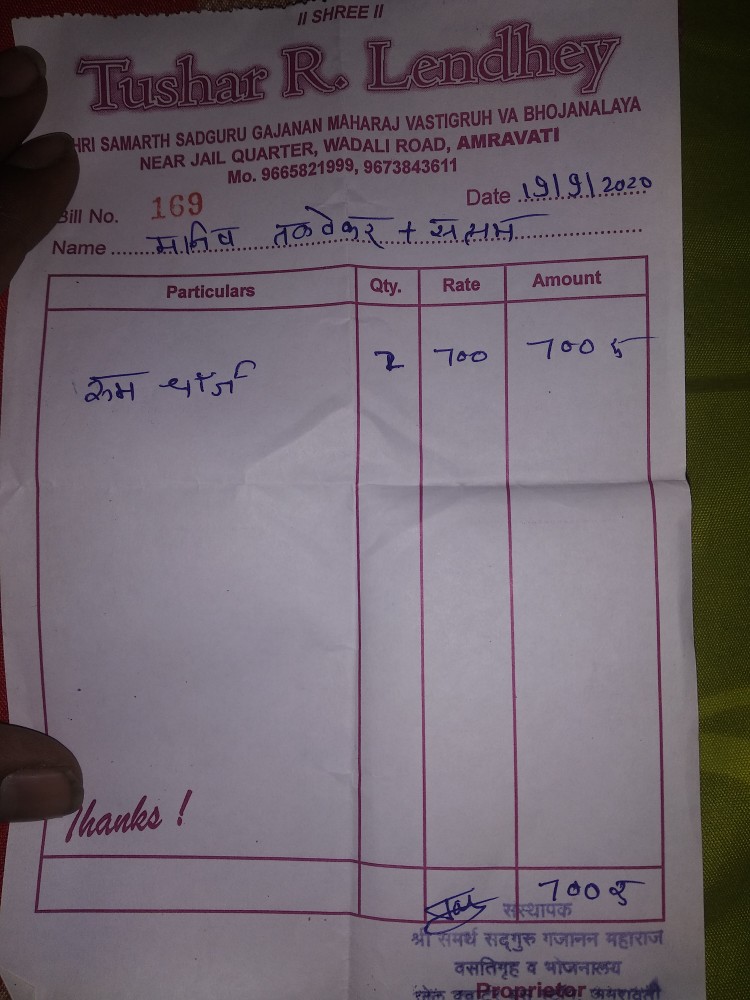 ॥ SHREE ॥
Tushar R. Lendhey
HRI SAMARTH SADGURU GAJANAN MAHARAJ VASTIGRUH VA BHOJANALAYA
NEAR JAIL QUARTER, WADALI ROAD, AMRAVATI
Mo. 9665821999, 9673843611
Bill No. 169 Date 19/9/2020
Name +
Particulars Qty. Rate Amount
रुम चार्ज 2 700 700 रु
Thanks !
700 रु
संस्थापक
श्री समर्थ सद्‌गुरु गजानन महाराज
वसतिगृह व भोजनालय
Proprietor